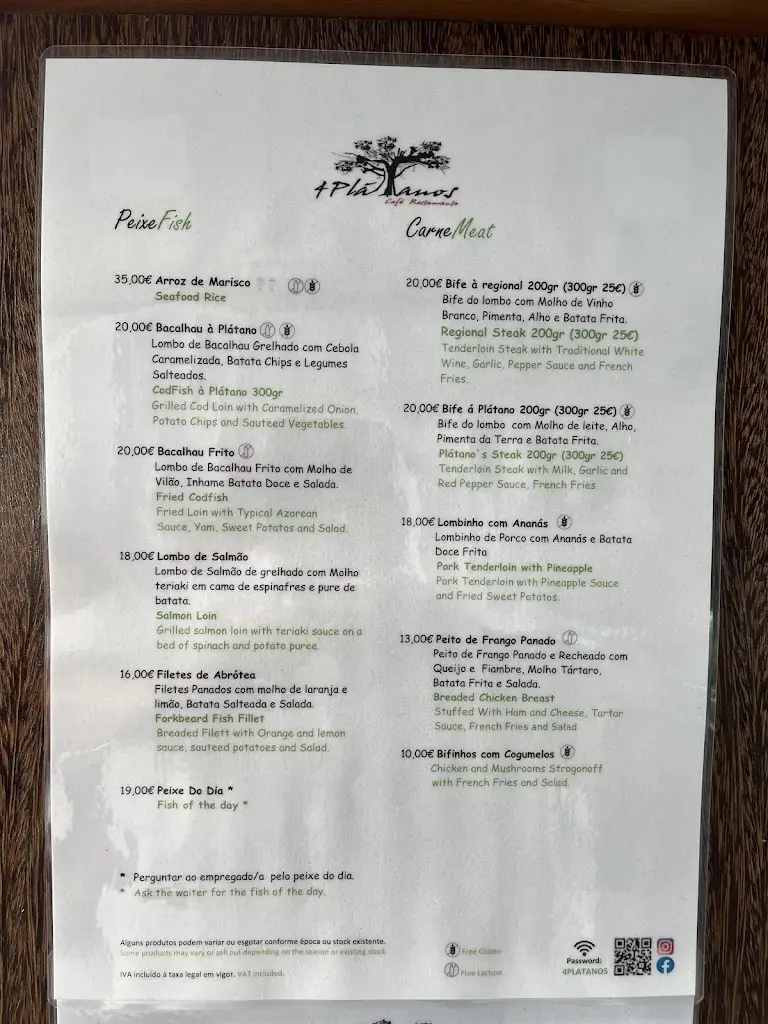 4Plátanos
Café Restaurante
PeixeFish
35,00€ Arroz de Marisco
Seafood Rice
20,00€ Bacalhau à Plátano
Lombo de Bacalhau Grelhado com Cebola
Caramelizada, Batata Chips e Legumes
Salteados.
CodFish à Plátano 300gr
Grilled Cod Loin with Caramelized Onion,
Potato Chips and Sauteed Vegetables
20,00€ Bacalhau Frito
Lombo de Bacalhau Frito com Molho de
Vilão, Inhame Batata Doce e Salada.
Fried Codfish
Fried Loin with Typical Azorean
Sauce, Yam, Sweet Potatos and Salad.
18,00€ Lombo de Salmão
Lombo de Salmão de grelhado com Molho
teriaki em cama de espinafres e pure de
batata.
Salmon Loin
Grilled salmon loin with teriaki sauce on a
bed of spinach and potato puree.
16,00€ Filetes de Abrótea
Filetes Panados com molho de laranja e
limão, Batata Salteada e Salada.
Forkbeard Fish Fillet
Breaded Filett with Orange and lemon
sauce, sauteed potatoes and Salad.
19,00€ Peixe Do Dia *
Fish of the day *
* Perguntar ao empregado/a pelo peixe do dia.
* Ask the waiter for the fish of the day.
CarneMeat
20,00€ Bife à regional 200gr (300gr 25€)
Bife do lombo com Molho de Vinho
Branco, Pimenta, Alho e Batata Frita.
Regional Steak 200gr (300gr 25€)
Tenderloin Steak with Traditional White
Wine, Garlic, Pepper Sauce and French
Fries.
20,00€ Bife á Plátano 200gr (300gr 25€)
Bife do lombo com Molho de leite, Alho,
Pimenta da Terra e Batata Frita.
Plátano`s Steak 200gr (300gr 25€)
Tenderloin Steak with Milk, Garlic and
Red Pepper Sauce, French Fries.
18,00€ Lombinho com Ananás
Lombinho de Porco com Ananás e Batata
Doce Frita
Pork Tenderloin with Pineapple
Pork Tenderloin with Pineapple Sauce
and Fried Sweet Potatos.
13,00€ Peito de Frango Panado
Peito de Frango Panado e Recheado com
Queijo e Fiambre, Molho Tártaro,
Batata Frita e Salada.
Breaded Chicken Breast
Stuffed With Ham and Cheese, Tartar
Sauce, French Fries and Salad
10,00€ Bifinhos com Cogumelos
Chicken and Mushrooms Strogonoff
with French Fries and Salad.
Alguns produtos podem variar ou esgotar conforme época ou stock existente.
Some products may vary or sell out depending on the season or existing stock.
IVA incluído à taxa legal em vigor. VAT included.
Free Glúten
Free Lactose
Password:
4PLATANOS